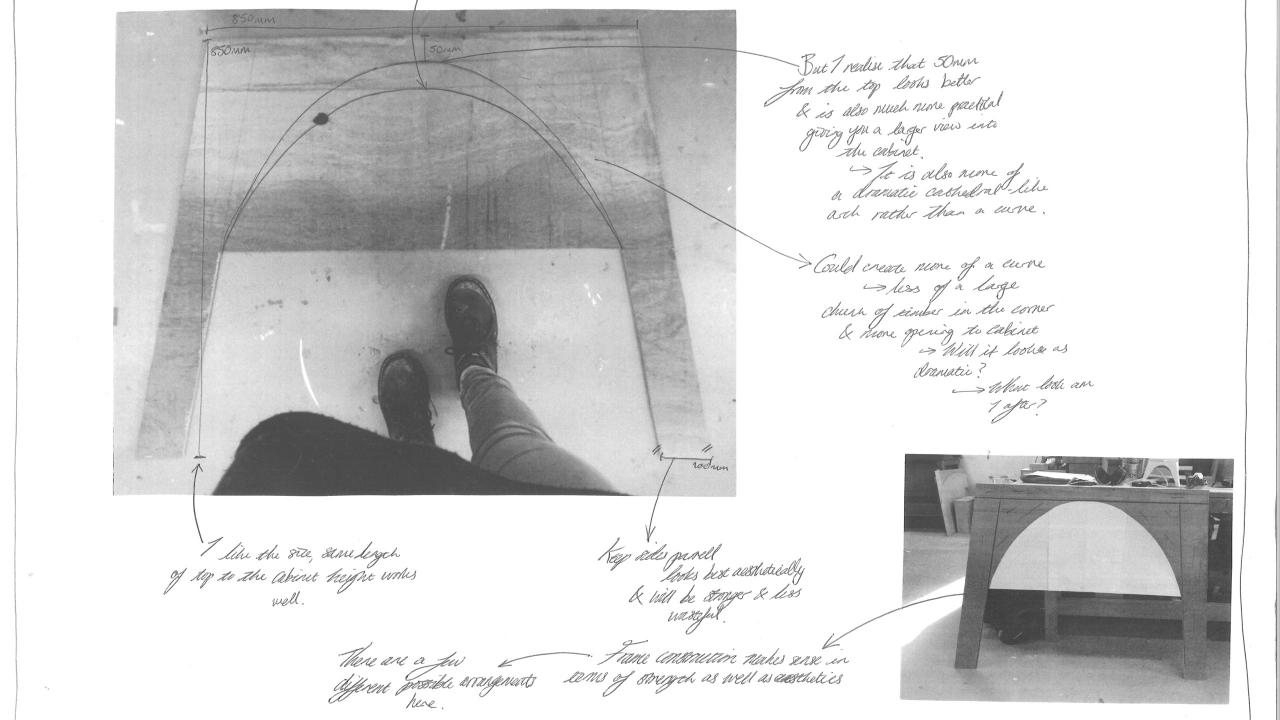 850mm
850mm
50mm
But I realise that 50mm
from the top looks better
& is also much more practical
giving you a larger view into
the cabinet.
→ It is also more of
a dramatic cathedral-like
arch rather than a curve.
Could create more of a curve
→ less of a large
chunk of timber in the corner
& more opening to cabinet
→ Will it look as
dramatic?
→ What look am
I after?
100mm
I like the size, same length
of top to the cabinet height works
well.
Keep sides
looks best aesthetically
& will be stronger & less
wasteful.
Frame construction makes sense in
terms of strength as well as aesthetics
There are a few
different possible arrangements
here.